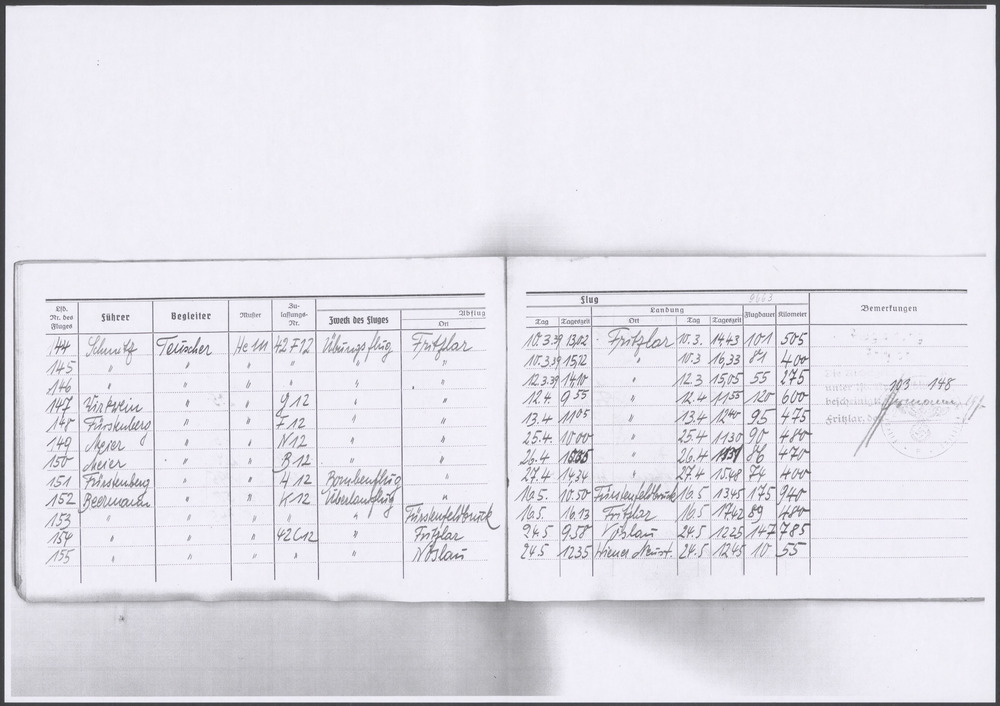 Lfd. Nr. des Fluges Führer Begleiter Muster Zulassungs-Nr. Zweck des Fluges Abflug Ort Tag Tageszeit Flug Landung Ort Tag Tageszeit Flugdauer Kilometer Bemerkungen
9663
144 Schmitz Teuscher He 111 42 F 12 Übungsflug Fritzlar 10.3.39 13,02 Fritzlar 10.3. 14 43 101 505
145 " " " " " " 10.3.39 15,12 " 10.3 16,33 81 400
146 " " " " " " 12.3.39 14 10 " 12.3 15,05 55 275
147 Wirtwein " " G 12 " " 12.4 9 55 " 12.4 11 55 120 600
148 Fürstenberg " " F 12 " " 13.4 11 05 " 13.4 12 40 95 475
149 Meier " " N 12 " " 25.4 10 00 " 25.4 11 30 90 480
150 Meier " " B 12 " " 26.4 " 26.4 11 31 86 470
151 Fürstenberg " " H 12 Bombenflug " 27.4 14 34 " 27.4 15 48 74 400
152 Beermann " " K 12 Überlandflug " 16.5. 10.50 Fürstenfeldbruck 16.5 13 45 175 940
153 " " " " " Fürstenfeldbruck 16.5. 16.13 Fritzlar 16.5 17 42 89 480
154 " " " 42 C 12 " Fritzlar 24.5 9.58 Vöslau 24.5 12 25 147 785
155 " " " " " Vöslau 24.5 12 35 Wiener Neust. 24.5 12 45 10 55
103 148
unter
bescheinigt
Fritzlar, de